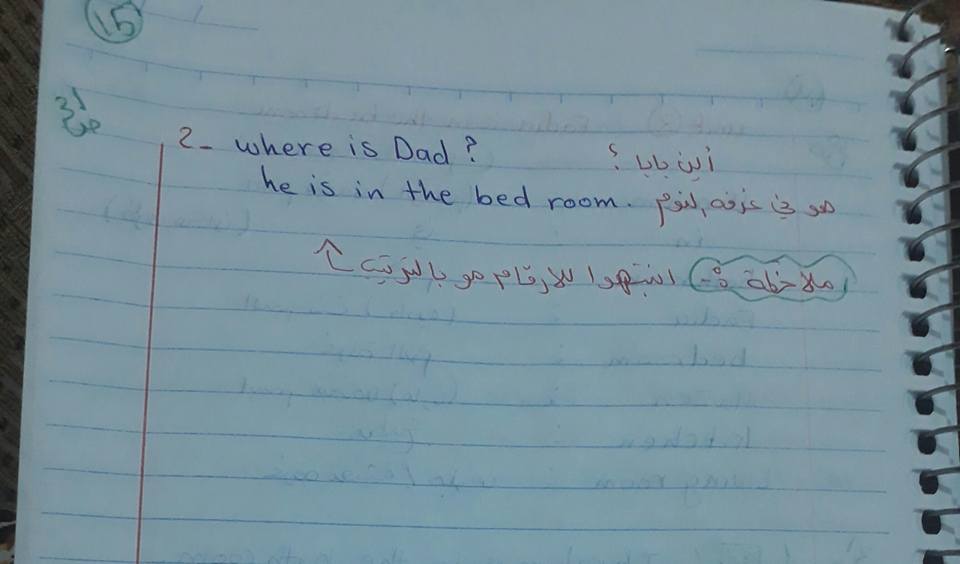 15
2- where is Dad ? أين بابا ؟
he is in the bed room. هو في غرفه النوم
ملاحظة :- انتبهوا للارقام مو بالترتيب